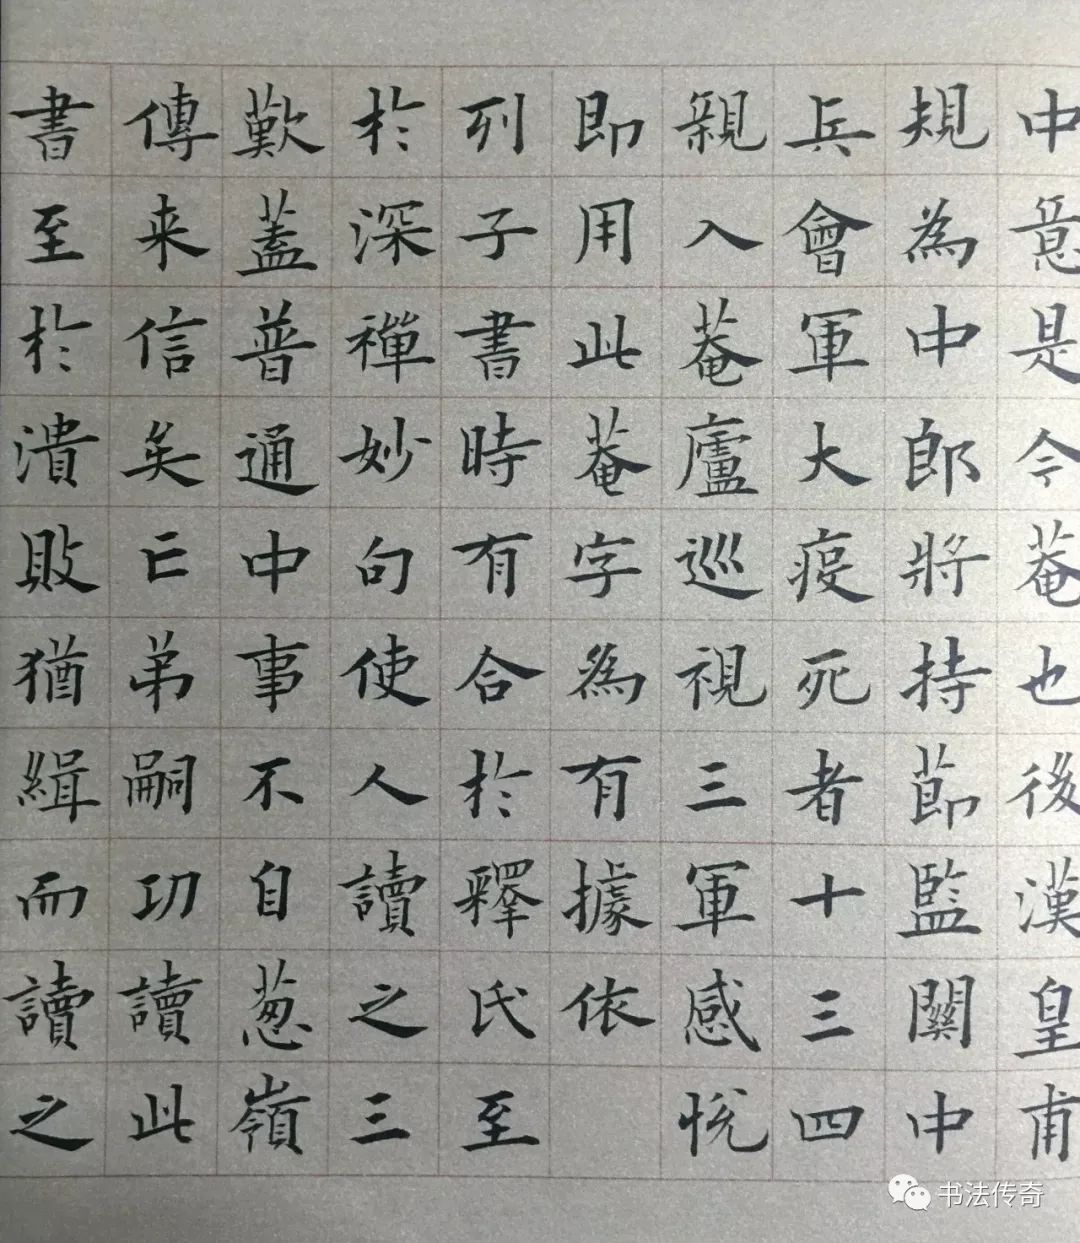 中意是今菴也後漢皇甫
規為中郎將持節監關中
兵會軍大疫死者十三四
親入菴廬巡視三軍感悅
即用此菴字為有據依
列子書時有合於釋氏至
於深禪妙句使人讀之三
歎蓋普通中事不自葱嶺
傳来信矣亡弟嗣功讀此
書至於潰敗猶緝而讀之
书法传奇